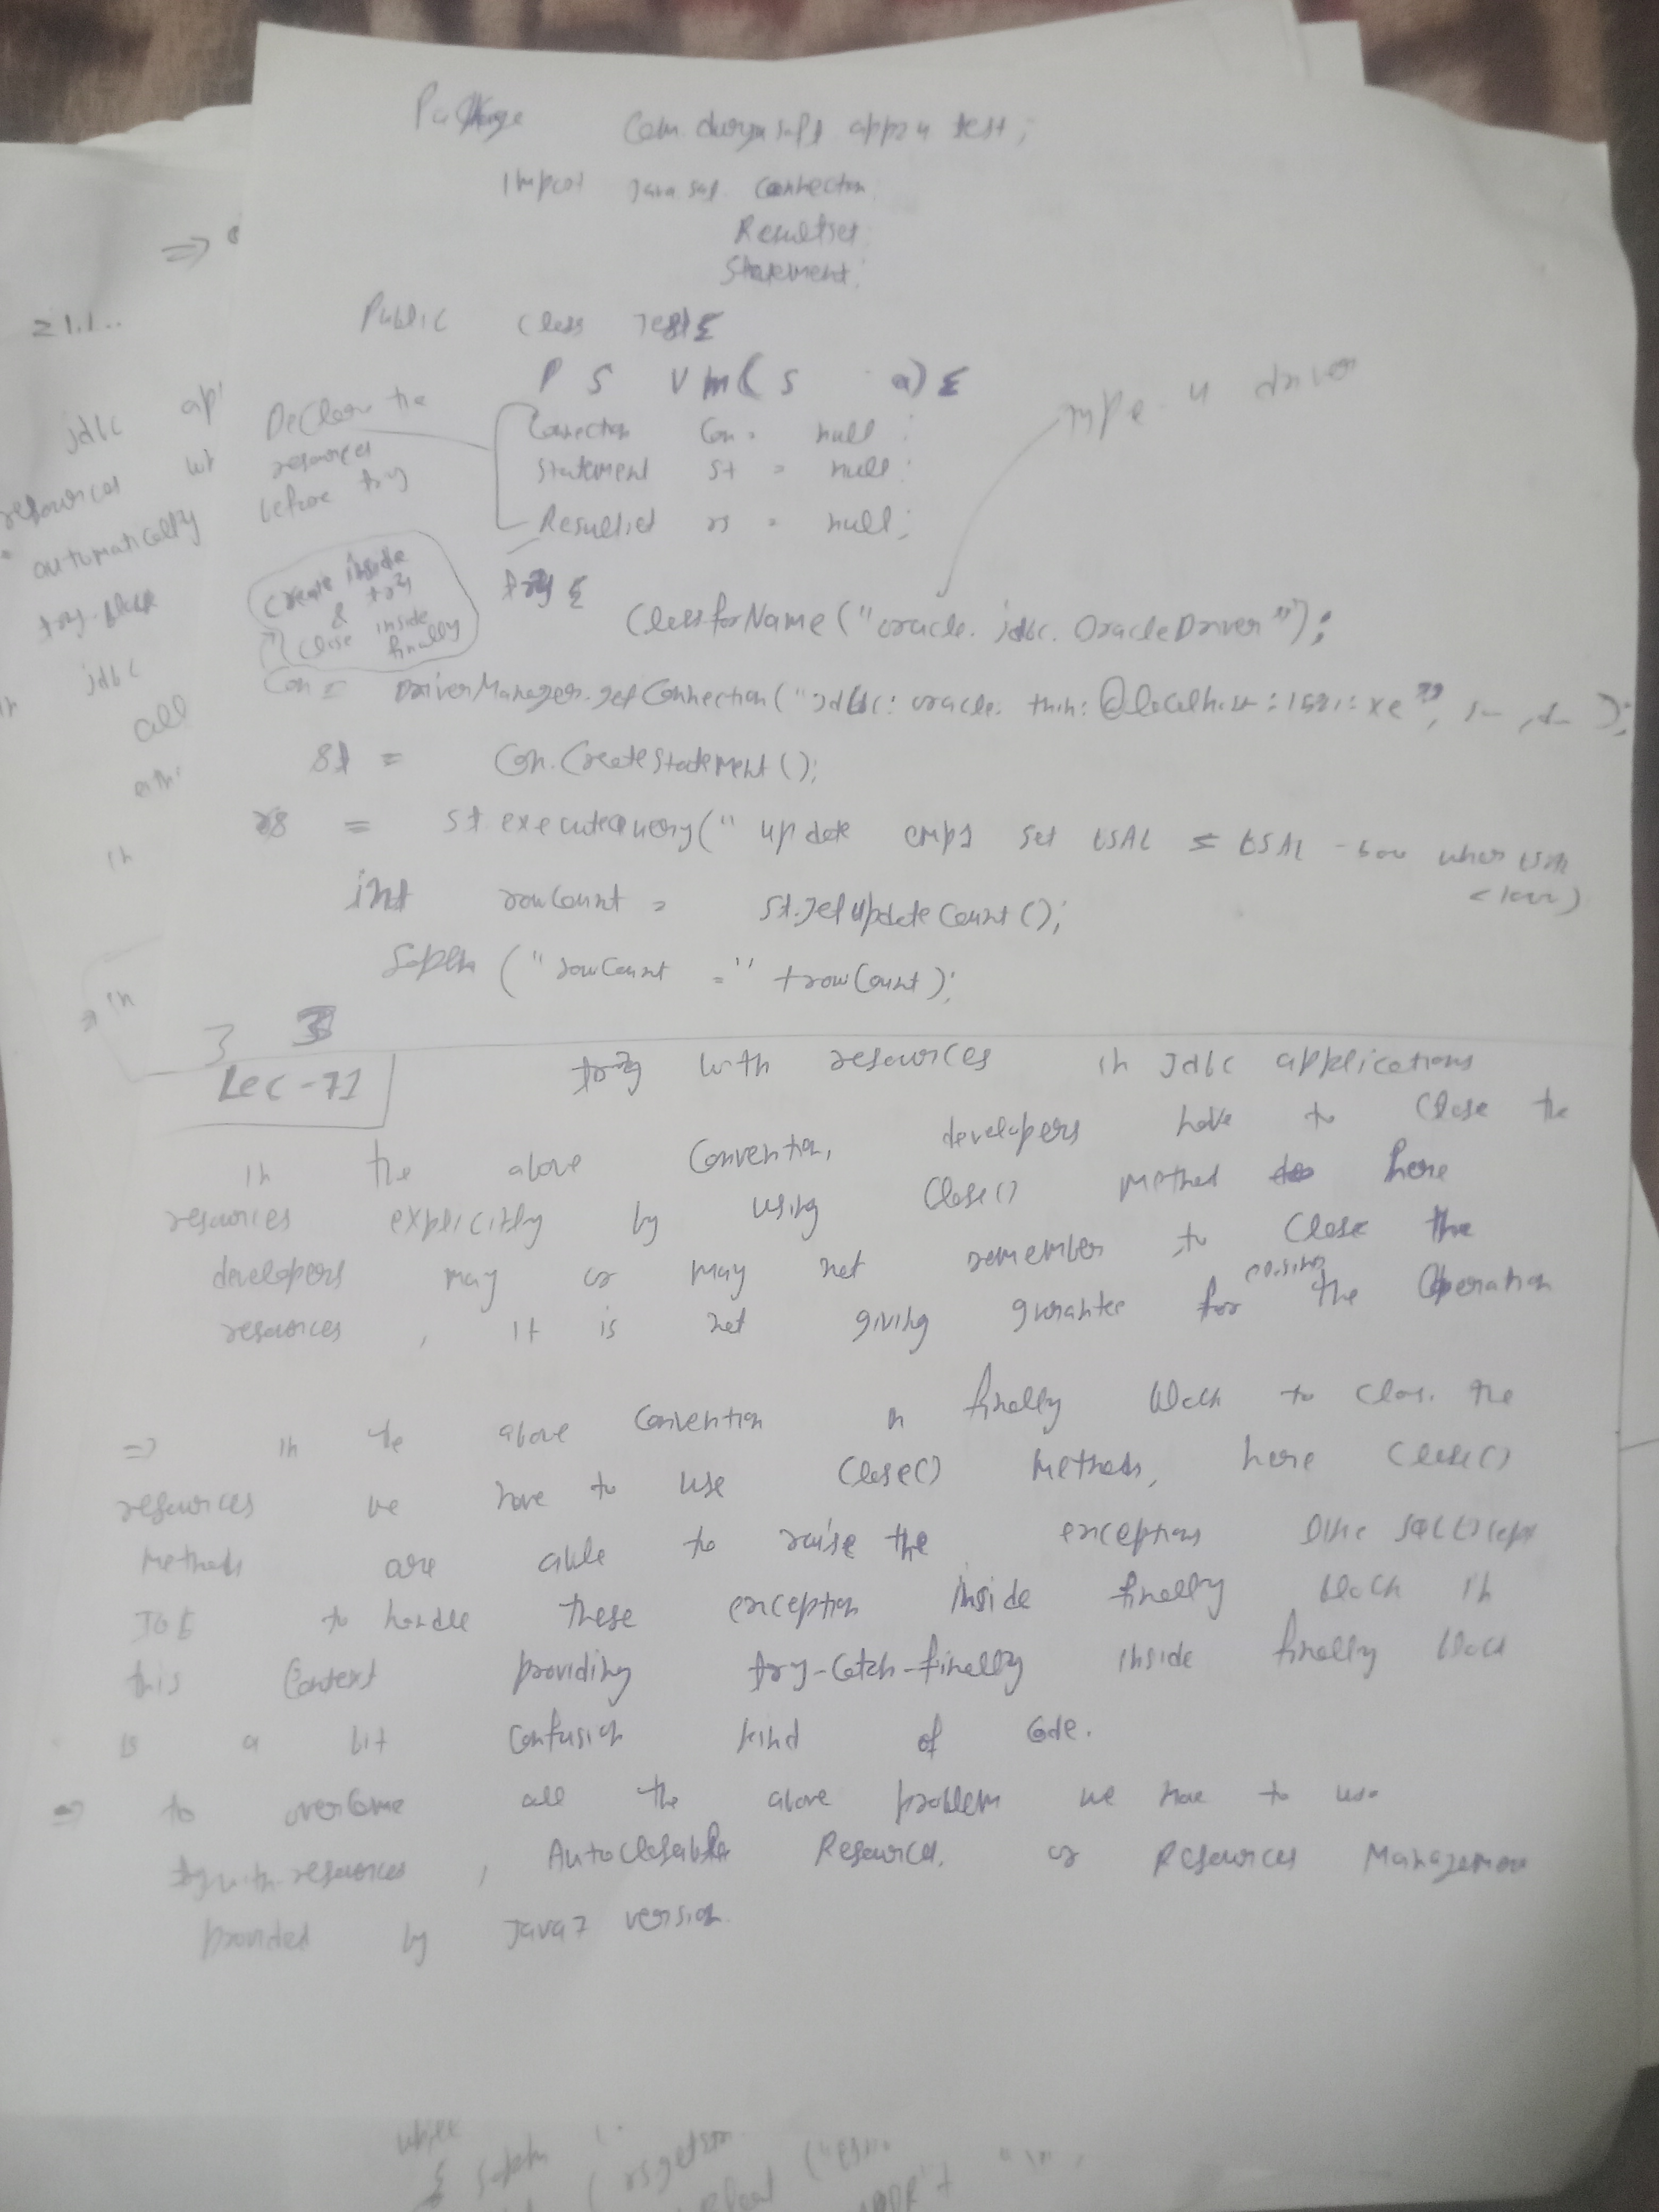 Package Com.durgasoft app24 test;
Import Java sql. Connection;
Resultset;
Statement;
Public Class Test {
P S V m( S a) {
Declare the
resources
before try
Connection Con = null;
Statement st = null;
Resultset rs = null;
type 4 driver
try {
create inside
try
&
close inside
finally
Class forName ("oracle. jdbc. OracleDriver");
Con = DriverManager.getConnection("Jdbc: oracle: thin: @localhost:1521:xe",
st = Con.CreateStatement();
rs = st executeQuery(" update emp1 set ESAL = ESAL -500 where ESAL
int rowCount = st.getUpdateCount();
Sopln ("rowCount =" +rowCount);
} }
Lec-71 try with resources in Jdbc applications
in the above Convention, developers have to Close the
resources explicitly by using Close() method here
developers may or may not remember to Close the
resources, it is not giving gurantee for the Operation
=> in the above Convention in finally block to close the
resources we have to use Close() Methods, here Close()
Methods are able to raise the exceptions like
to handle these exception inside finally block in
this Context providing try-catch-finally inside finally block
is a bit confusion kind of Code.
=> to overcome all the above problem we have to use
try-with-resources, Autoclosable Resources, or Resources Management
provided by Java7 version.
=>
jdbc
resources
automatically
try-block
jdbc
all
in
in